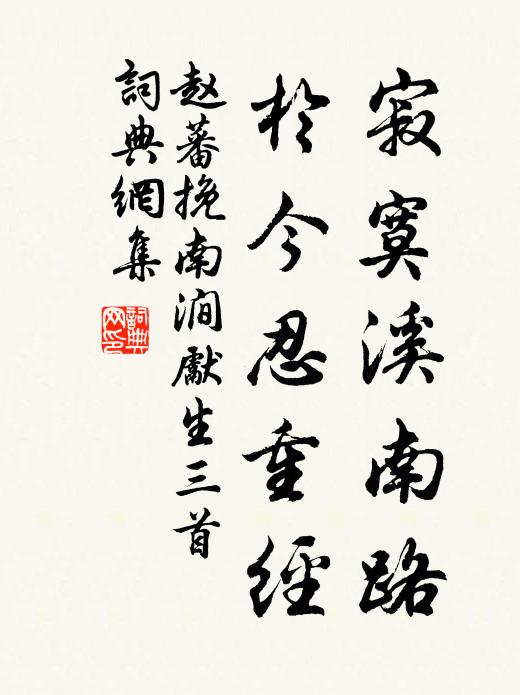 寂寞溪南路
於今忍重經
赵蕃挽南澗獻生三首
詞典網集
詞典网印